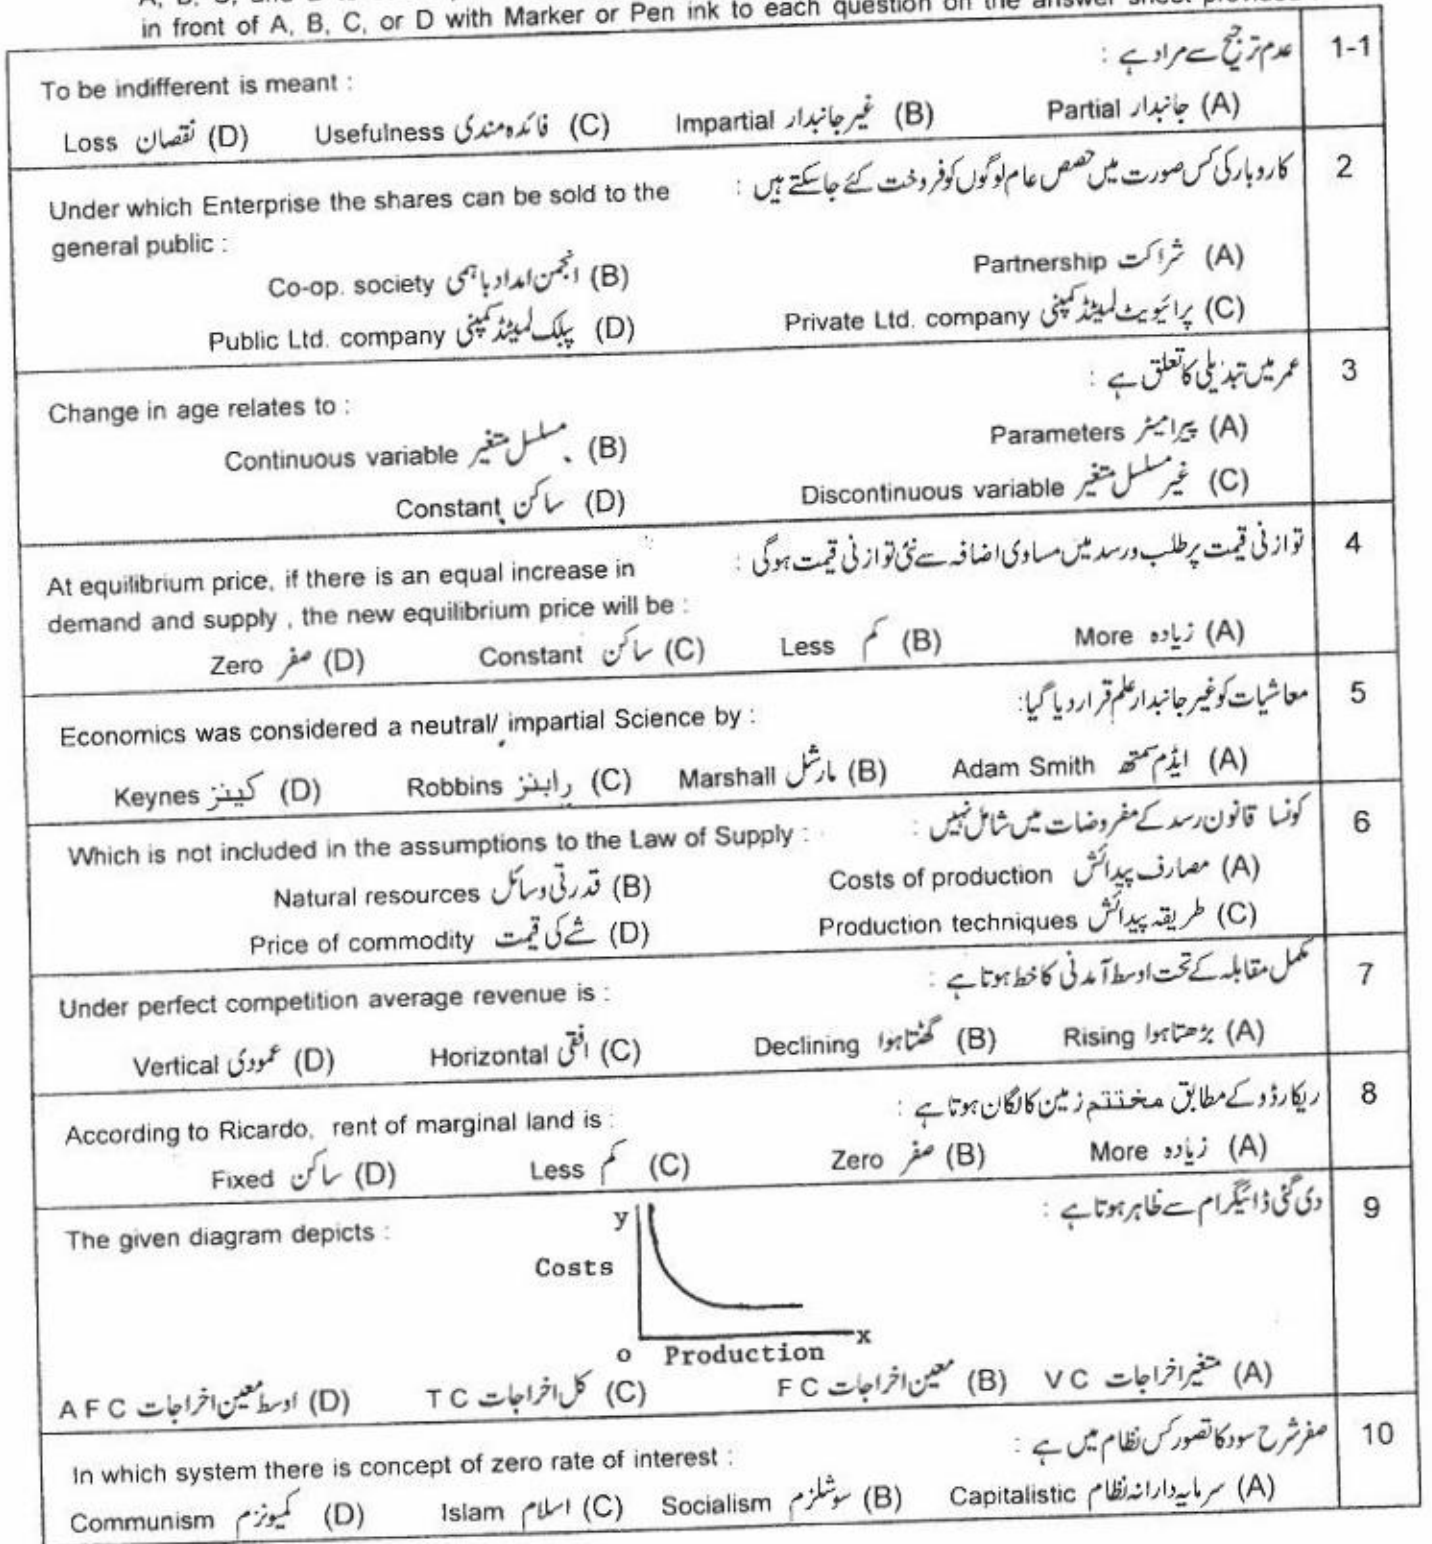 in front of A, B, C, or D with Marker or Pen ink to each question on the answer sheet
1-1 عدم ترجیح سے مراد ہے :
To be indifferent is meant :
(A) جانبدار Partial (B) غیر جانبدار Impartial (C) فائدہ مندی Usefulness (D) نقصان Loss
2 کاروبار کی کس صورت میں حصص عام لوگوں کو فروخت کئے جاسکتے ہیں :
Under which Enterprise the shares can be sold to the
general public :
(A) شراکت Partnership (B) انجمن امداد باہمی Co-op. society
(C) پرائیویٹ لمیٹڈ کمپنی Private Ltd. company (D) پبلک لمیٹڈ کمپنی Public Ltd. company
3 عمر میں تبدیلی کا تعلق ہے :
Change in age relates to :
(A) پیرامیٹر Parameters (B) مسلسل متغیر Continuous variable
(C) غیر مسلسل متغیر Discontinuous variable (D) ساکن Constant
4 توازنی قیمت پر طلب و رسد میں مساوی اضافہ سے نئی توازنی قیمت ہوگی :
At equilibrium price, if there is an equal increase in
demand and supply , the new equilibrium price will be :
(A) زیادہ More (B) کم Less (C) ساکن Constant (D) صفر Zero
5 معاشیات کو غیر جانبدار علم قرار دیا گیا:
Economics was considered a neutral/ impartial Science by :
(A) ایڈم سمتھ Adam Smith (B) مارشل Marshall (C) رابنز Robbins (D) کینز Keynes
6 کونسا قانون رسد کے مفروضات میں شامل نہیں :
Which is not included in the assumptions to the Law of Supply :
(A) مصارف پیدائش Costs of production (B) قدرتی وسائل Natural resources
(C) طریقہ پیدائش Production techniques (D) شے کی قیمت Price of commodity
7 مکمل مقابلہ کے تحت اوسط آمدنی کا خط ہوتا ہے :
Under perfect competition average revenue is :
(A) بڑھتا ہوا Rising (B) گھٹتا ہوا Declining (C) افقی Horizontal (D) عمودی Vertical
8 ریکارڈو کے مطابق مختتم زمین کا لگان ہوتا ہے :
According to Ricardo, rent of marginal land is :
(A) زیادہ More (B) صفر Zero (C) کم Less (D) ساکن Fixed
9 دی گئی ڈائیگرام سے ظاہر ہوتا ہے :
The given diagram depicts :
y
Costs
x
o Production
(A) متغیر اخراجات V C (B) معین اخراجات F C (C) کل اخراجات T C (D) اوسط معین اخراجات A F C
10 صفر شرح سود کا تصور کس نظام میں ہے :
In which system there is concept of zero rate of interest :
(A) سرمایہ دارانہ نظام Capitalistic (B) سوشلزم Socialism (C) اسلام Islam (D) کمیونزم Communism